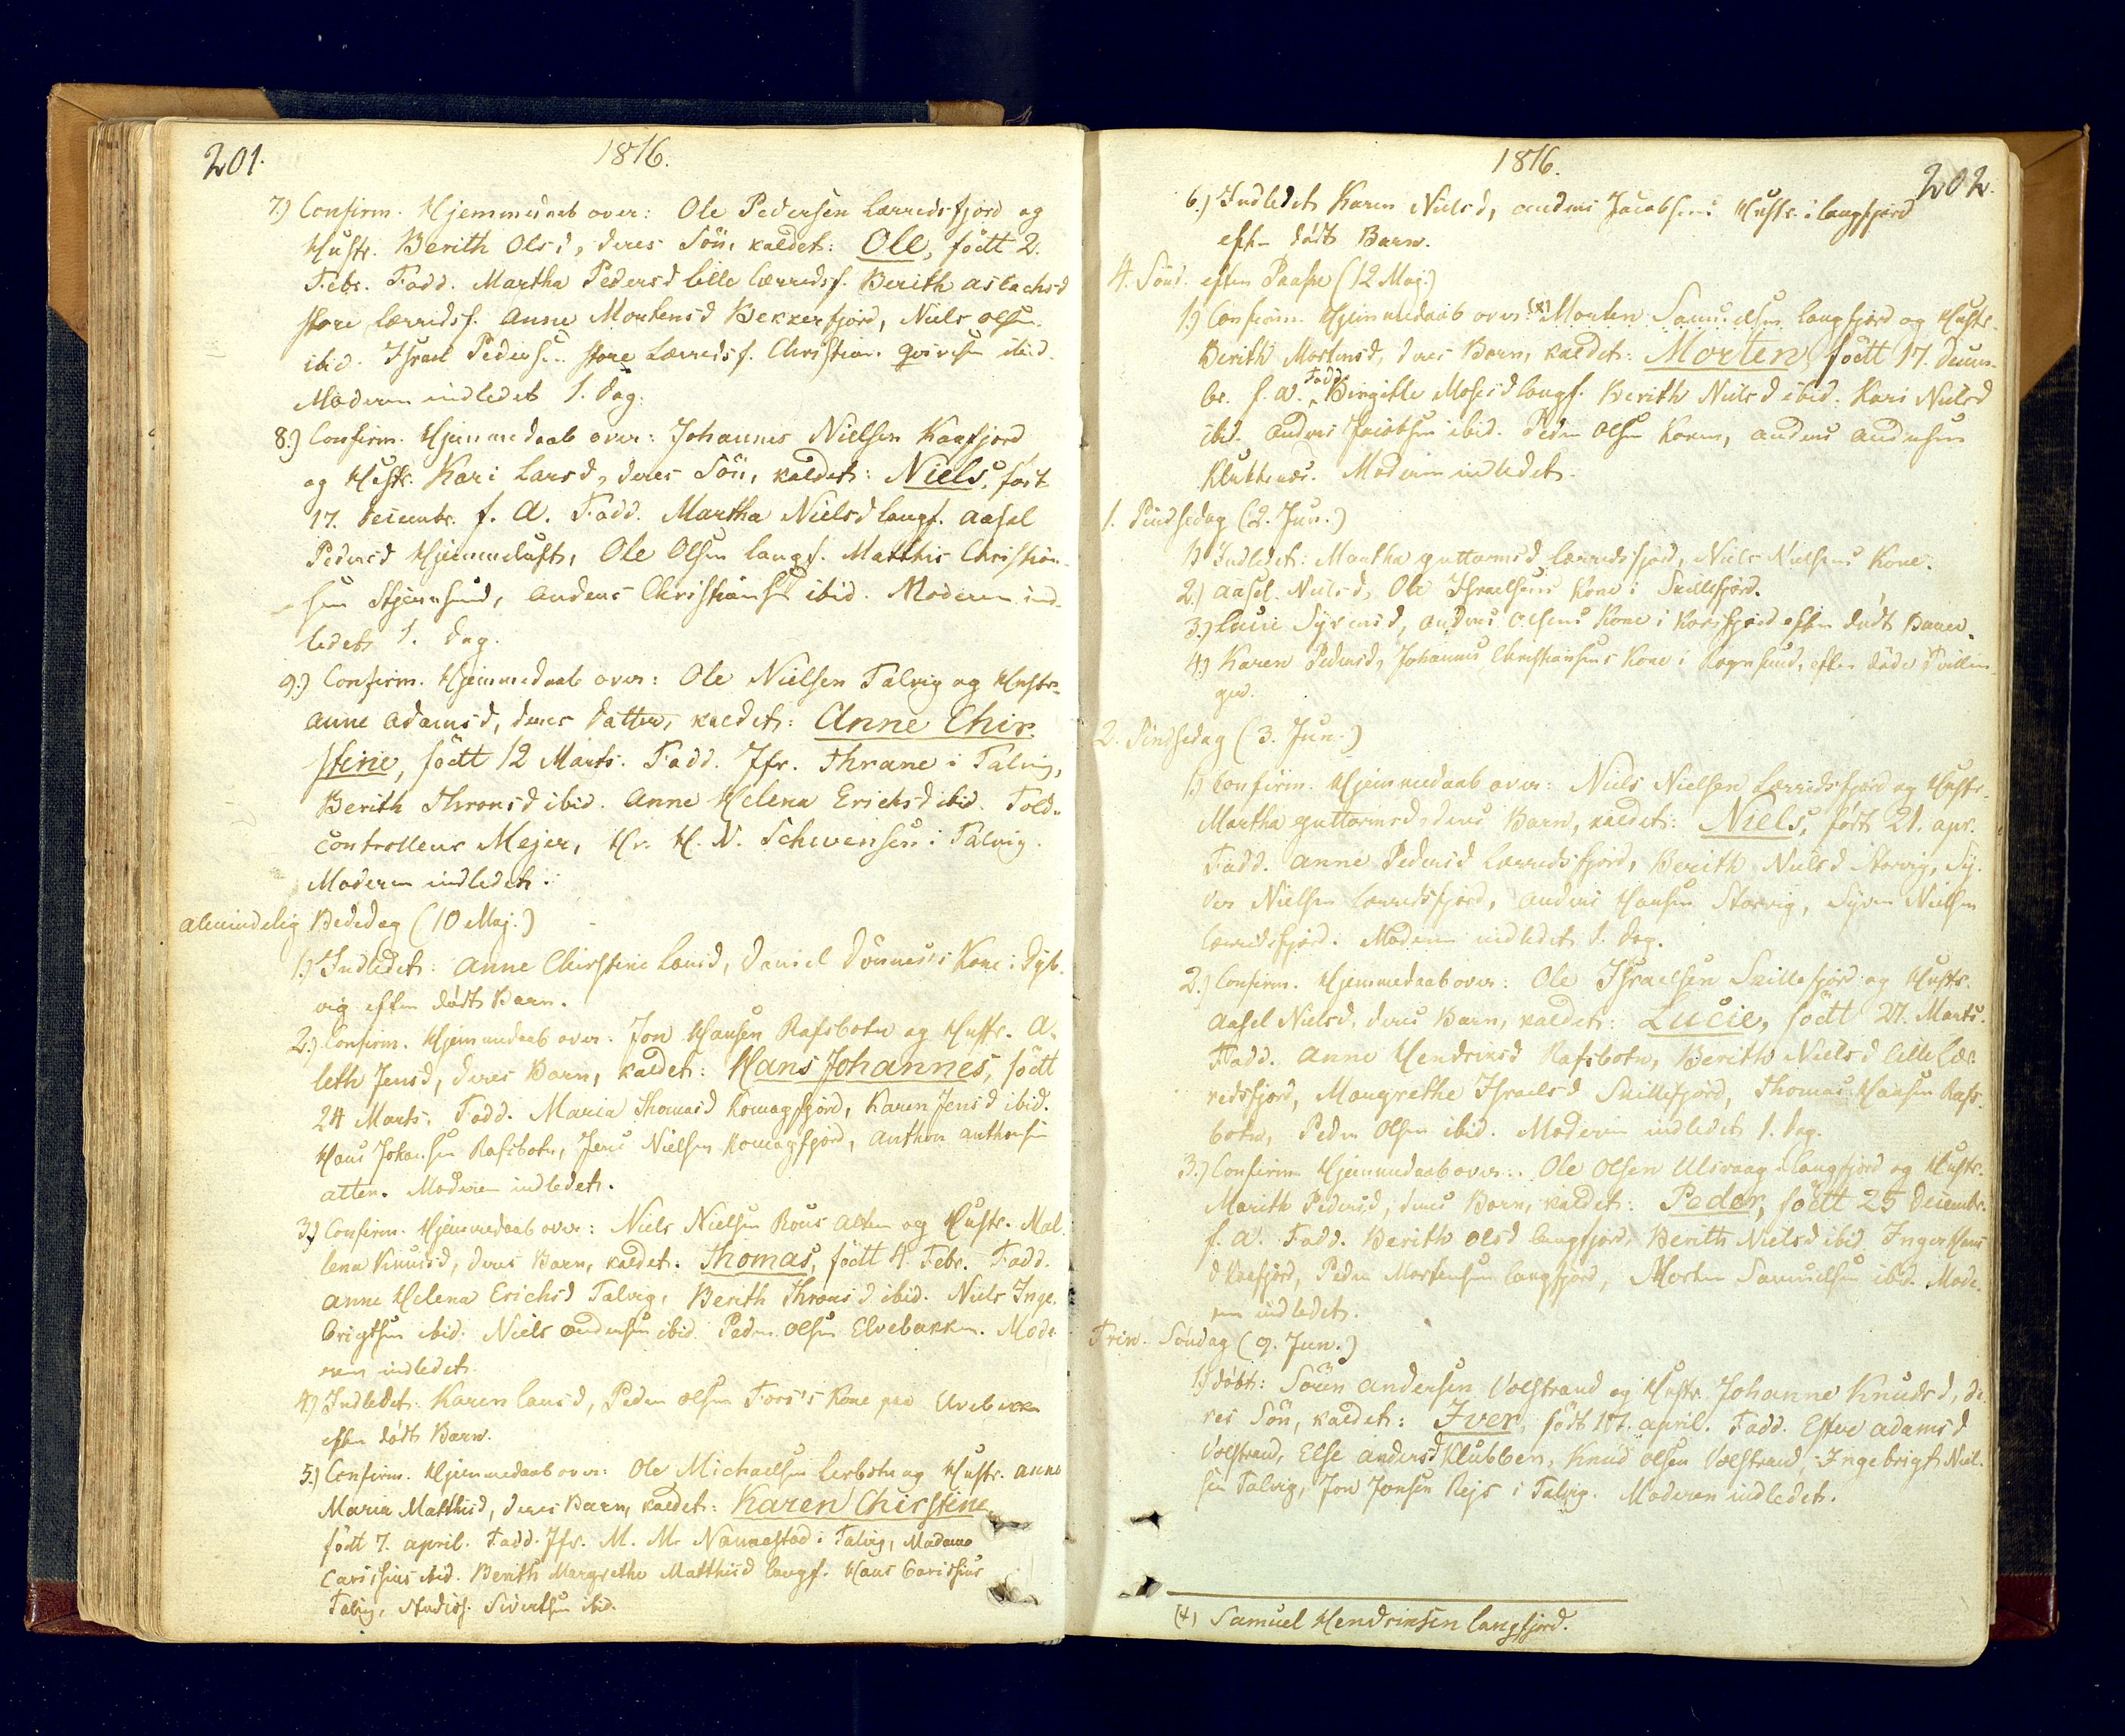 201.
1816.
7.) Confirm. Hjemmedaab over: Ole Pedersen Lerredsfjord og
Hustr. Berith Olsd, deres Sön, kaldet: Ole, födt 2.
Febr. Fadd. Martha Pedersd lille Lerredsf. Berith Aslachsd
store Lerredsf. Anne Mortensd Bekkerfjord, Niels Olsen
ibid. Israel Pedersen store Lerredsf. Christian ibid.
Moderen indledet 1. Dag.
8.) Confirm. Hjemmedaab over: Johannes Nielsen Kaafjord
og Hustr. Kari Larsd, deres Sön, kaldet: Niels, födt
17. Decembr. f. A. Fadd. Martha Nielsd Langf. Aasel
Pedersd Hjemmeluft, Ole Olsen Langf. Matthis Christian-
sen Stjernsund, Anders Christiansen ibid. Moderen ind-
ledet 1. Dag.
9.) Confirm. Hjemmedaab over: Ole Nielsen Talvig og Hustr.
Anne Adamsd, deres Datter, kaldet: Anne Chir-
stine, födt 12 Marts. Fadd. Jfr. Thrane i Talvig,
Berith Thronsd ibid. Anne Helena Erichsd ibid. Told-
controlleur Mejer, Hr. H. N. Schwensen i Talvig.
Moderen indledet.
Almindelig Bededag (10 Maj.)
1.) Indledet: Anne Chirstine Larsd, Daniel Kone i
vig efter dödt Barn.
2.) Confirm. Hjemmedaab over: Jon Hansen Rafsbotn og Hustr. A-
leth Jensd, deres Barn, kaldet: Hans Johannes, födt
24 Marts. Fadd. Maria Thomasd Komagfjord, Karen Jensd ibid.
Hans Johansen Rafsbotn, Jens Nielsen Komagfjord, Anthon Anthonsen
Alten. Moderen indledet.
3.) Confirm. Hjemmedaab over: Niels Nielsen Alten og Hustr. Mal-
lena Knudsd, deres Barn, kaldet: Thomas, födt 4. Febr. Fadd.
Anne Helena Erichsd Talvig, Berith Thronsd ibid. Niels Inge-
brigtsen ibid. Niels Andersen ibid. Peder Olsen Elvebakken. Mode-
ren indledet.
4.) Indledet: Karen Larsd, Peder Olsen Kone paa Elvebakken
efter dödt Barn.
5.) Confirm. Hjemmedaab over: Ole Michaelsen Lerbotn og Hustr. Anne
Maria Matthisd, deres Barn, kaldet: Karen Chirstine
födt 7. April. Fadd. Jfr. M. M. Nannestad i Talvig, Madame
ibid. Berith Margrethe Matthisd Langf. Hans
Talvig, Sivertsen ibid.
1816.
202.
6.) Indledet Karen Nielsd, Anders Jacobsens Hustr. i Langfjord
efter dödt Barn.
4. Sönd. efter Paaske (12 Maj.)
1.) Confirm. Hjemmedaab over: Morten Samuelsen Langfjord og Hustr.
Berith Mortensd, deres Barn, kaldet: Morten, födt 17. Decem-
br. f. A. Fadd. Birgitte Mosesd Langf. Berith Nielsd ibid. Kari Nielsd
ibid. Anders Jacobsen ibid. Peder Olsen Anders Andersen
Moderen indledet.
1. Pindsedag (2. Jun.)
1.) Indledet: Martha Guttormsd Lerredsfjord, Niels Nielsens Kone.
2.) Aasel Nielsd, Ole Israelsens Kone i Skillefjord.
3.) Lucie Syversd, Anders Olsens Kone i Korsfjord efter dödt Barn.
4.) Karen Pedersd, Johannes Christiansens Kone i Rognsund, efter döde Tvillin-
ger.
2. Pindsedag (3. Jun.)
1.) Confirm. Hjemmedaab over: Niels Nielsen Lerredsfjord og Hustr.
Martha Guttormsd, deres Barn, kaldet: Niels, födt 21. Apr.
Fadd. Anne Pedersd Lerredsfjord, Berith Nielsd Storvig, Sy-
ver Nielsen Lerredsfjord, Anders Hansen Storvig, Syver Nielsen
Lerredsfjord. Moderen indledet 1. Dag.
2.) Confirm. Hjemmedaab over: Ole Israelsen Skillefjord og Hustr.
Aasel Nielsd, deres Barn, kaldet: Lucie, födt 27. Marts.
Fadd. Anne Hendriksd Rafsbotn, Berith Nielsd lille Ler-
redsfjord, Margrethe Israelsd Skillefjord, Thomas Hansen Rafs-
botn, Peder Olsen ibid. Moderen indledet 1. Dag.
3.) Confirm. Hjemmedaab over: Ole Olsen Ulsvaag i Langfjord og Hustr.
Marith Pedersd, deres Barn, kaldet: Peder, födt 25 Decembr.
f. A. Fadd. Berith Olsd Langfjord, Berith Nielsd ibid. Inger Hans-
d Kaafjord, Peder Mortensen Langfjord, Morten Samuelsen ibid. Mode-
ren indledet.
Trin. Söndag (9. Jun.)
1.) Döbt: Sören Andersen Volstrand og Hustr. Johanne Knudsd, de-
res Sön, kaldet: Iver, födt 17. April. Fadd. Ester Adamsd
Volstrand, Else Andersd Klubben, Knud Olsen Volstrand, Ingebrigt Niel-
sen Talvig, Jon Jonsen Rejs i Talvig. Moderen indledet.
(*) Samuel Hendriksen Langfjord.